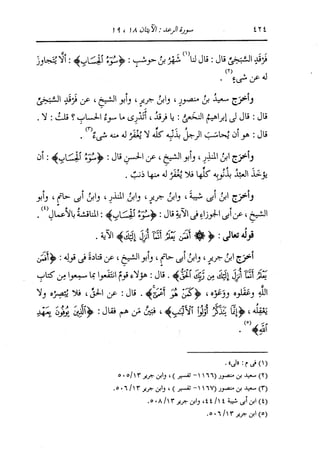 ٤٢٤ سورة الرعد : الآيتان ١٨ ، ١٩
فرقدٍ السَّبَخِيِّ قال : قال لنا(١) شهرُ بنُ حوشبٍ : ﴿سُوٓءُ ٱلْحِسَابِ﴾ : ألَّا يُتجاوزَ
له عن شيءٍ(٢) .
وأخرَج سعيدُ بنُ منصورٍ ، وابنُ جريرٍ ، وأبو الشيخِ ، عن فرقدٍ السَّبَخِيِّ
قال : قال لي إبراهيمُ النخعيُّ : يا فرقدُ ، أتدْرِي ما سوءُ الحسابِ ؟ قلتُ : لا .
قال : هو أن يُحاسَبَ الرجلُ بذنبِه كلِّه لا يُغفَرُ له منه شيءٌ(٣) .
وأخرَج ابنُ المنذرِ ، وأبو الشيخِ ، عن الحسنِ قال : ﴿سُوٓءُ ٱلْحِسَابِ﴾ : أن
يؤخَذَ العبدُ بذنوبِه كلِّها فلا يُغفَرَ له منها ذنبٌ .
وأخرَج ابنُ أبي شيبةَ ، وابنُ جريرٍ ، وابنُ المنذرِ ، وابنُ أبي حاتمٍ ، وأبو
الشيخِ ، عن أبي الجوزاءِ في الآيةِ قال : ﴿سُوٓءُ ٱلْحِسَابِ﴾ : المناقشةُ بالأعمالِ(٤) .
قولُه تعالى : ﴿۞ أَفَمَن يَعْلَمُ أَنَّمَآ أُنزِلَ إِلَيْكَ﴾ الآية .
أخرَج ابنُ جريرٍ ، وابنُ أبي حاتمٍ ، وأبو الشيخِ ، عن قتادةَ في قولِه : ﴿أَفَمَن
يَعْلَمُ أَنَّمَآ أُنزِلَ إِلَيْكَ مِن رَّبِّكَ ٱلْحَقُّ﴾ . قال : هؤلاء قومٌ انتفَعوا بما سمِعوا من كتابِ
اللهِ وعقَلوه ووعَوْه ، ﴿كَمَنْ هُوَ أَعْمَىٰٓ﴾ . قال : عن الحقِّ ، فلا يُبصِرُه ولا
يعقِلُه ، ﴿إِنَّمَا يَتَذَكَّرُ أُو۟لُوا۟ ٱلْأَلْبَٰبِ﴾ ، فبيَّن مَن هم فقال : ﴿ٱلَّذِينَ يُوفُونَ بِعَهْدِ
ٱللَّهِ﴾(٥) .
(١) في م : «لي» .
(٢) سعيد بن منصور (١١٦٦- تفسير) ، وابن جرير ١٣/ ٥٠٥
(٣) سعيد بن منصور (١١٦٧- تفسير) ، وابن جرير ١٣/ ٥٠٦.
(٤) ابن أبي شيبة ١٤/ ٤٤، وابن جرير ١٣/ ٥٠٨.
(٥) ابن جرير ١٣/ ٥٠٦.